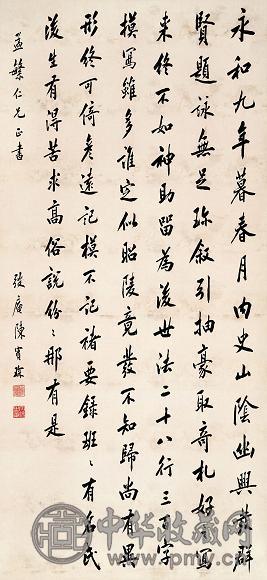 永和九年暮春月內史山陰幽興發群
賢題詠無足珎敘引抽豪取奇札好之寫
来終不如神助留為後世法二十八行三百字
摸寫雖多誰定似昭陵竟發不知歸尚有異
形終可倚彥遠記模不記褚要錄班〻有名氏
後生有得苦求高俗說份〻那有是
孟蘩仁兄正書
弢庵陳寶琛
中华收藏网